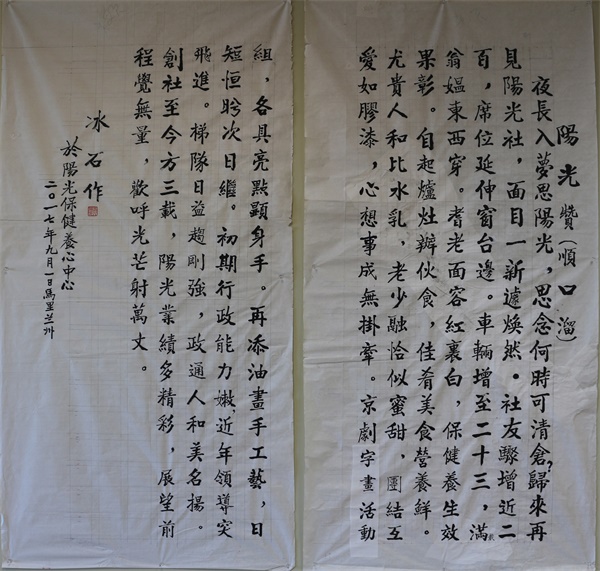 陽光贊(順口溜)
夜長入夢思陽光,思念何時可清倉?歸來再
見陽光社,面目一新濾煥然。社友驟增近二
百,席位延伸窗台邊。車輛增至二十三,滿
翁媼東西穿。耆老面容紅裏白,保健養生效
果彰。自起爐灶辦伙食,佳肴美食營養鮮。
尤貴人和比水乳,老少融恰似蜜甜,團結互
愛如膠漆,心想事成無掛牽。京劇字畫活動
組,各具亮點顯身手。再添油畫手工藝,日
短恒肹次日繼。初期行政能力嫩,近年領導突
飛進。梯隊日益趨剛強,政通人和美名揚。
創社至今方三載,陽光業績多精彩,展望前
程覺無量,歡呼光芒射萬丈。
冰石作
於陽光保健養心中心
二〇一七年九月一日馬里蘭州